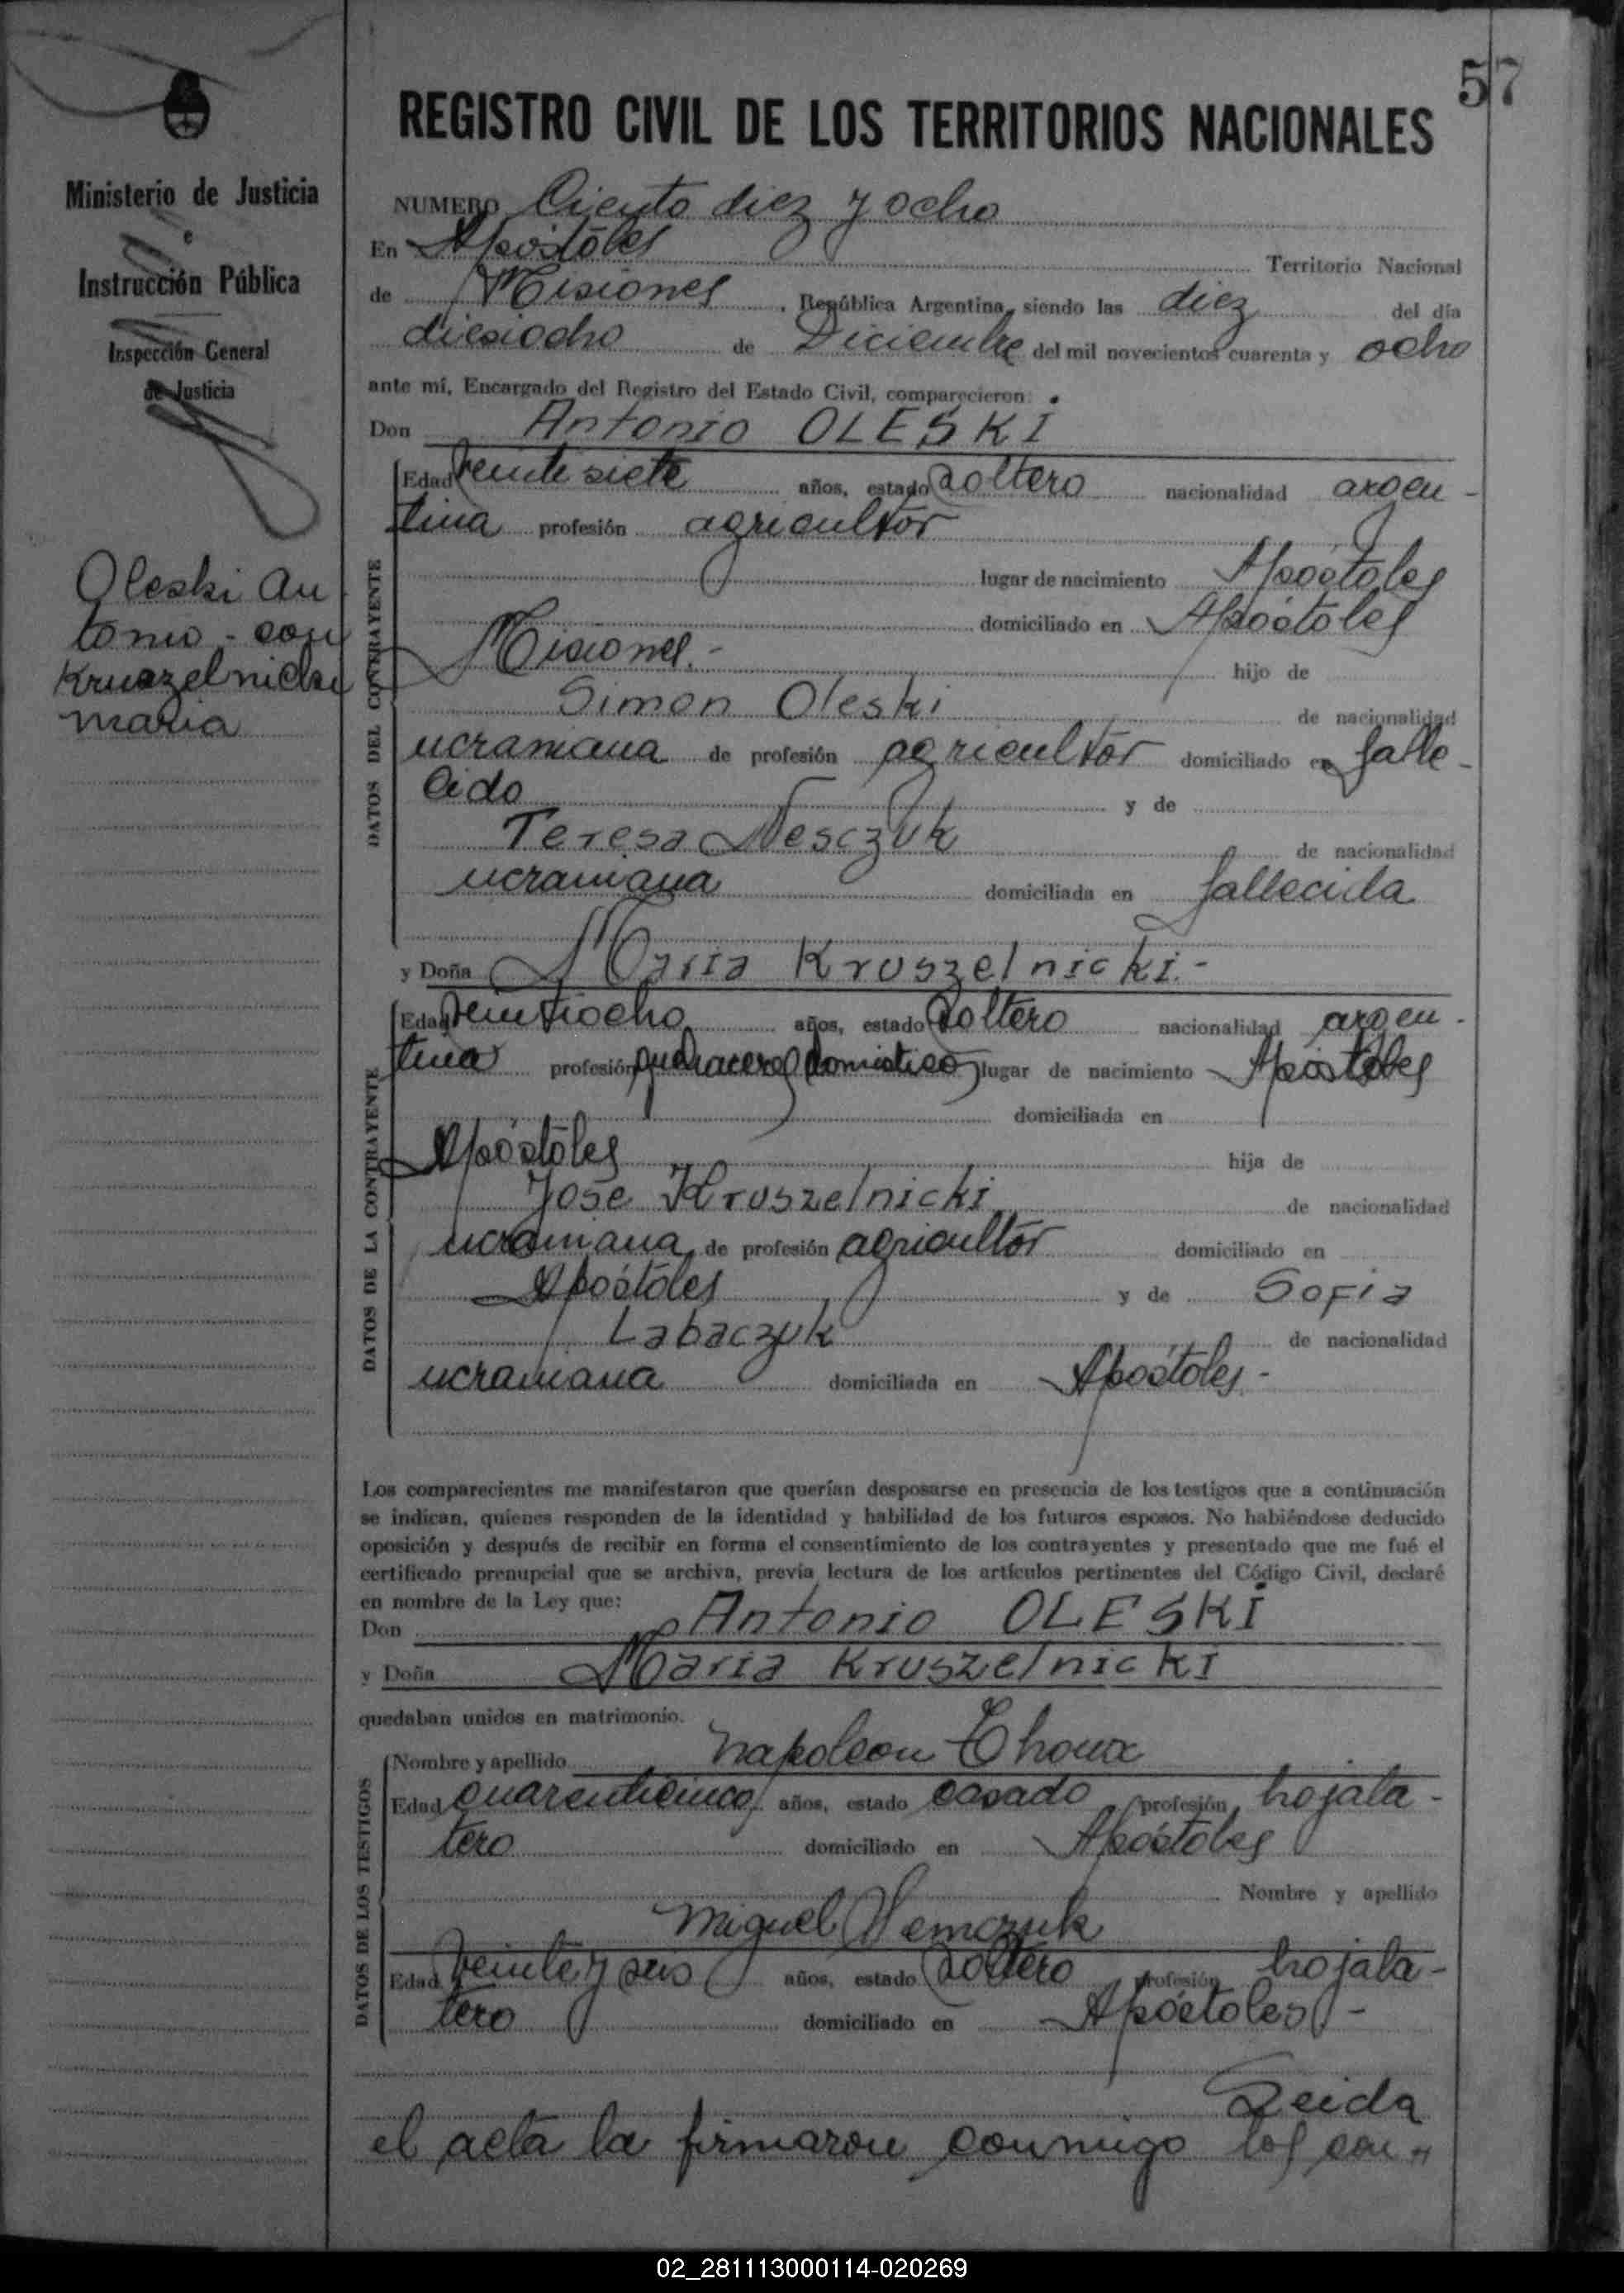 57
REGISTRO CIVIL DE LOS TERRITORIOS NACIONALES
Ministerio de Justicia
e
Instrucción Pública
Inspección General
de Justicia
Oleski An
tonio - con
Kruszelnicki
maria
NUMERO Ciento diez y ocho
En Apóstoles Territorio Nacional
de Misiones, República Argentina, siendo las diez del día
dieciocho de Diciembre del mil novecientos cuarenta y ocho
ante mí, Encargado del Registro del Estado Civil, comparecieron:
Don Antonio OLESKI
DATOS DEL CONTRAYENTE
Edad veinte siete años, estado soltero nacionalidad argen-
tina profesión agricultor
lugar de nacimiento Apóstoles
domiciliado en Apóstoles
Misiones.- hijo de
Simon Oleski de nacionalidad
ucraniana de profesión agricultor domiciliado en falle-
cido y de
Teresa Nesczuk de nacionalidad
ucraniana domiciliada en fallecida
y Doña Maria Kruszelnicki.-
DATOS DE LA CONTRAYENTE
Edad veintiocho años, estado soltero nacionalidad argen-
tina profesión quehaceres domestico lugar de nacimiento Apóstoles
domiciliada en
Apóstoles hija de
José Kruszelnicki de nacionalidad
ucraniana de profesión agricultor domiciliado en
Apóstoles y de Sofia
Labaczuk de nacionalidad
ucraniana domiciliada en Apóstoles-
Los comparecientes me manifestaron que querían desposarse en presencia de los testigos que a continuación
se indican, quienes responden de la identidad y habilidad de los futuros esposos. No habiéndose deducido
oposición y después de recibir en forma el consentimiento de los contrayentes y presentado que me fué el
certificado prenupcial que se archiva, previa lectura de los artículos pertinentes del Código Civil, declaré
en nombre de la Ley que:
Don Antonio OLESKI
y Doña Maria Kruszelnicki
quedaban unidos en matrimonio.
DATOS DE LOS TESTIGOS
Nombre y apellido Napoleon Choux
Edad cuarenticinco años, estado casado profesión hojala-
tero domiciliado en Apóstoles
Nombre y apellido
Miguel Hemczuk
Edad veinte y seis años, estado soltero profesión hojala-
tero domiciliado en Apóstoles-
Leida
el acta la firmaron conmigo los con"
02_281113000114-020269